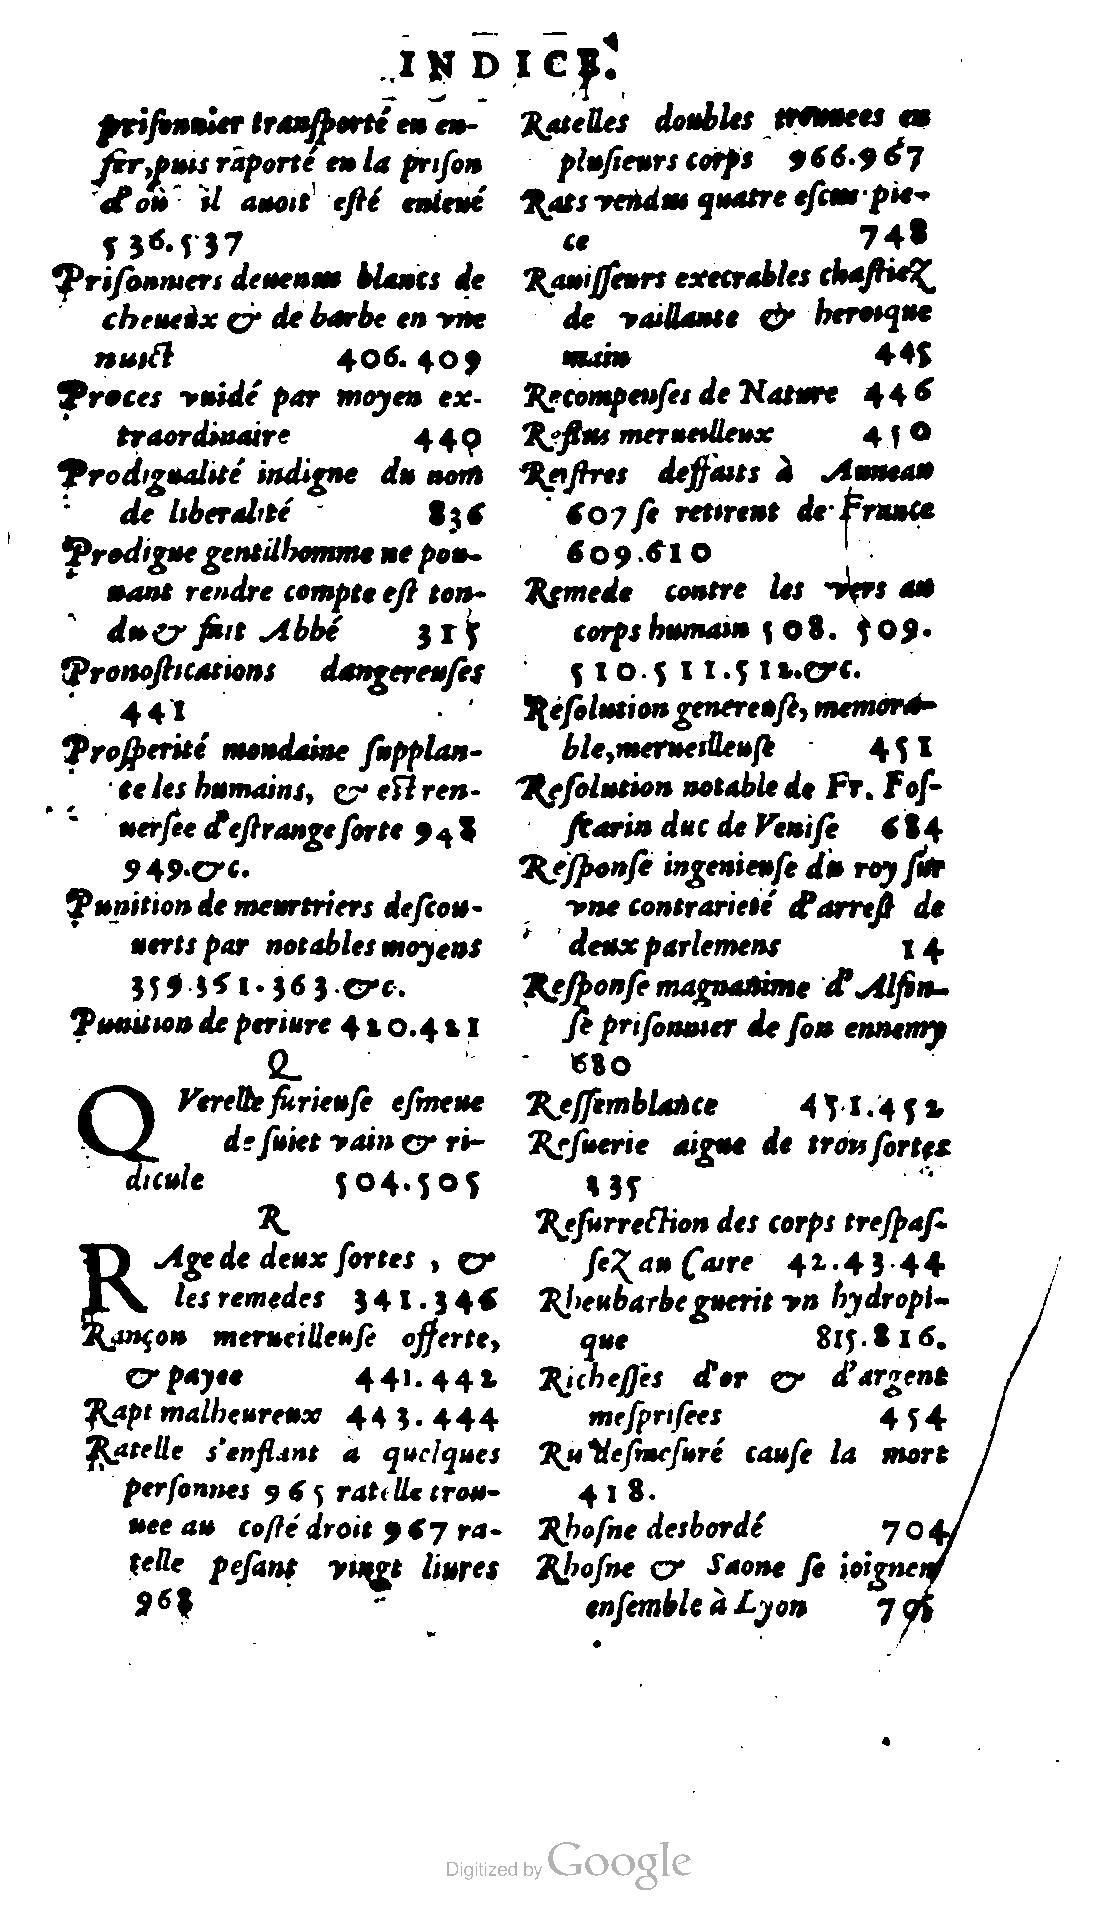 INDICE.
prisonnier transporté en en-
fer, puis rāporté en la prison
d'où il auoit esté enleué
536.537
Prisonniers deuenus blancs de
cheueùx & de barbe en vne
nuict 406.409
Proces vuidé par moyen ex-
traordinaire 440
Prodigualité indigne du nom
de liberalité 836
Prodigue gentilhomme ne pou-
uant rendre compte est ton-
du & fait Abbé 315
Pronostications dangereuses
441
Prosperité mondaine supplan-
te les humains, & est ren-
uersee d'estrange sorte 948
949.&c.
Punition de meurtriers descou-
uerts par notables moyens
359.361.363.&c.
Punition de periure 420.421
Q
QVerelle furieuse esmeue
de suiet vain & ri-
dicule 504.505
R
RAge de deux sortes, &
les remedes 341.346
Rançon merueilleuse offerte,
& payee 441.442
Rapt malheureux 443.444
Ratelle s'enflant à quelques
personnes 965 ratelle trou-
uee au costé droit 967 ra-
telle pesant vingt liures
968
Ratelles doubles trouuees en
plusieurs corps 966.967
Rats vendus quatre escus pie-
ce 748
Rauisseurs execrables chastiez
de vaillante & heroique
main 445
Recompenses de Nature 446
Reflus merueilleux 450
Reistres deffaits à Auneau
607 se retirent de France
609.610
Remede contre les vers au
corps humain 508. 509.
510.511.512.&c.
Résolution genereuse, memora-
ble, merueilleuse 451
Resolution notable de Fr. Fos-
carin duc de Venise 684
Response ingenieuse du roy sur
vne contrarieté d'arrest de
deux parlemens 14
Response magnanime d'Alfon-
se prisonnier de son ennemy
680
Ressemblance 451.452
Resuerie aigue de trois sortes
335
Resurrection des corps trespas-
sez au Caire 42.43.44
Rheubarbe guerit vn hydropi-
que 815.816.
Richesses d'or & d'argent
mesprisees 454
Ru desmesuré cause la mort
418.
Rhosne desbordé 704
Rhosne & Saone se ioignent
ensemble à Lyon 705
Digitized by Google